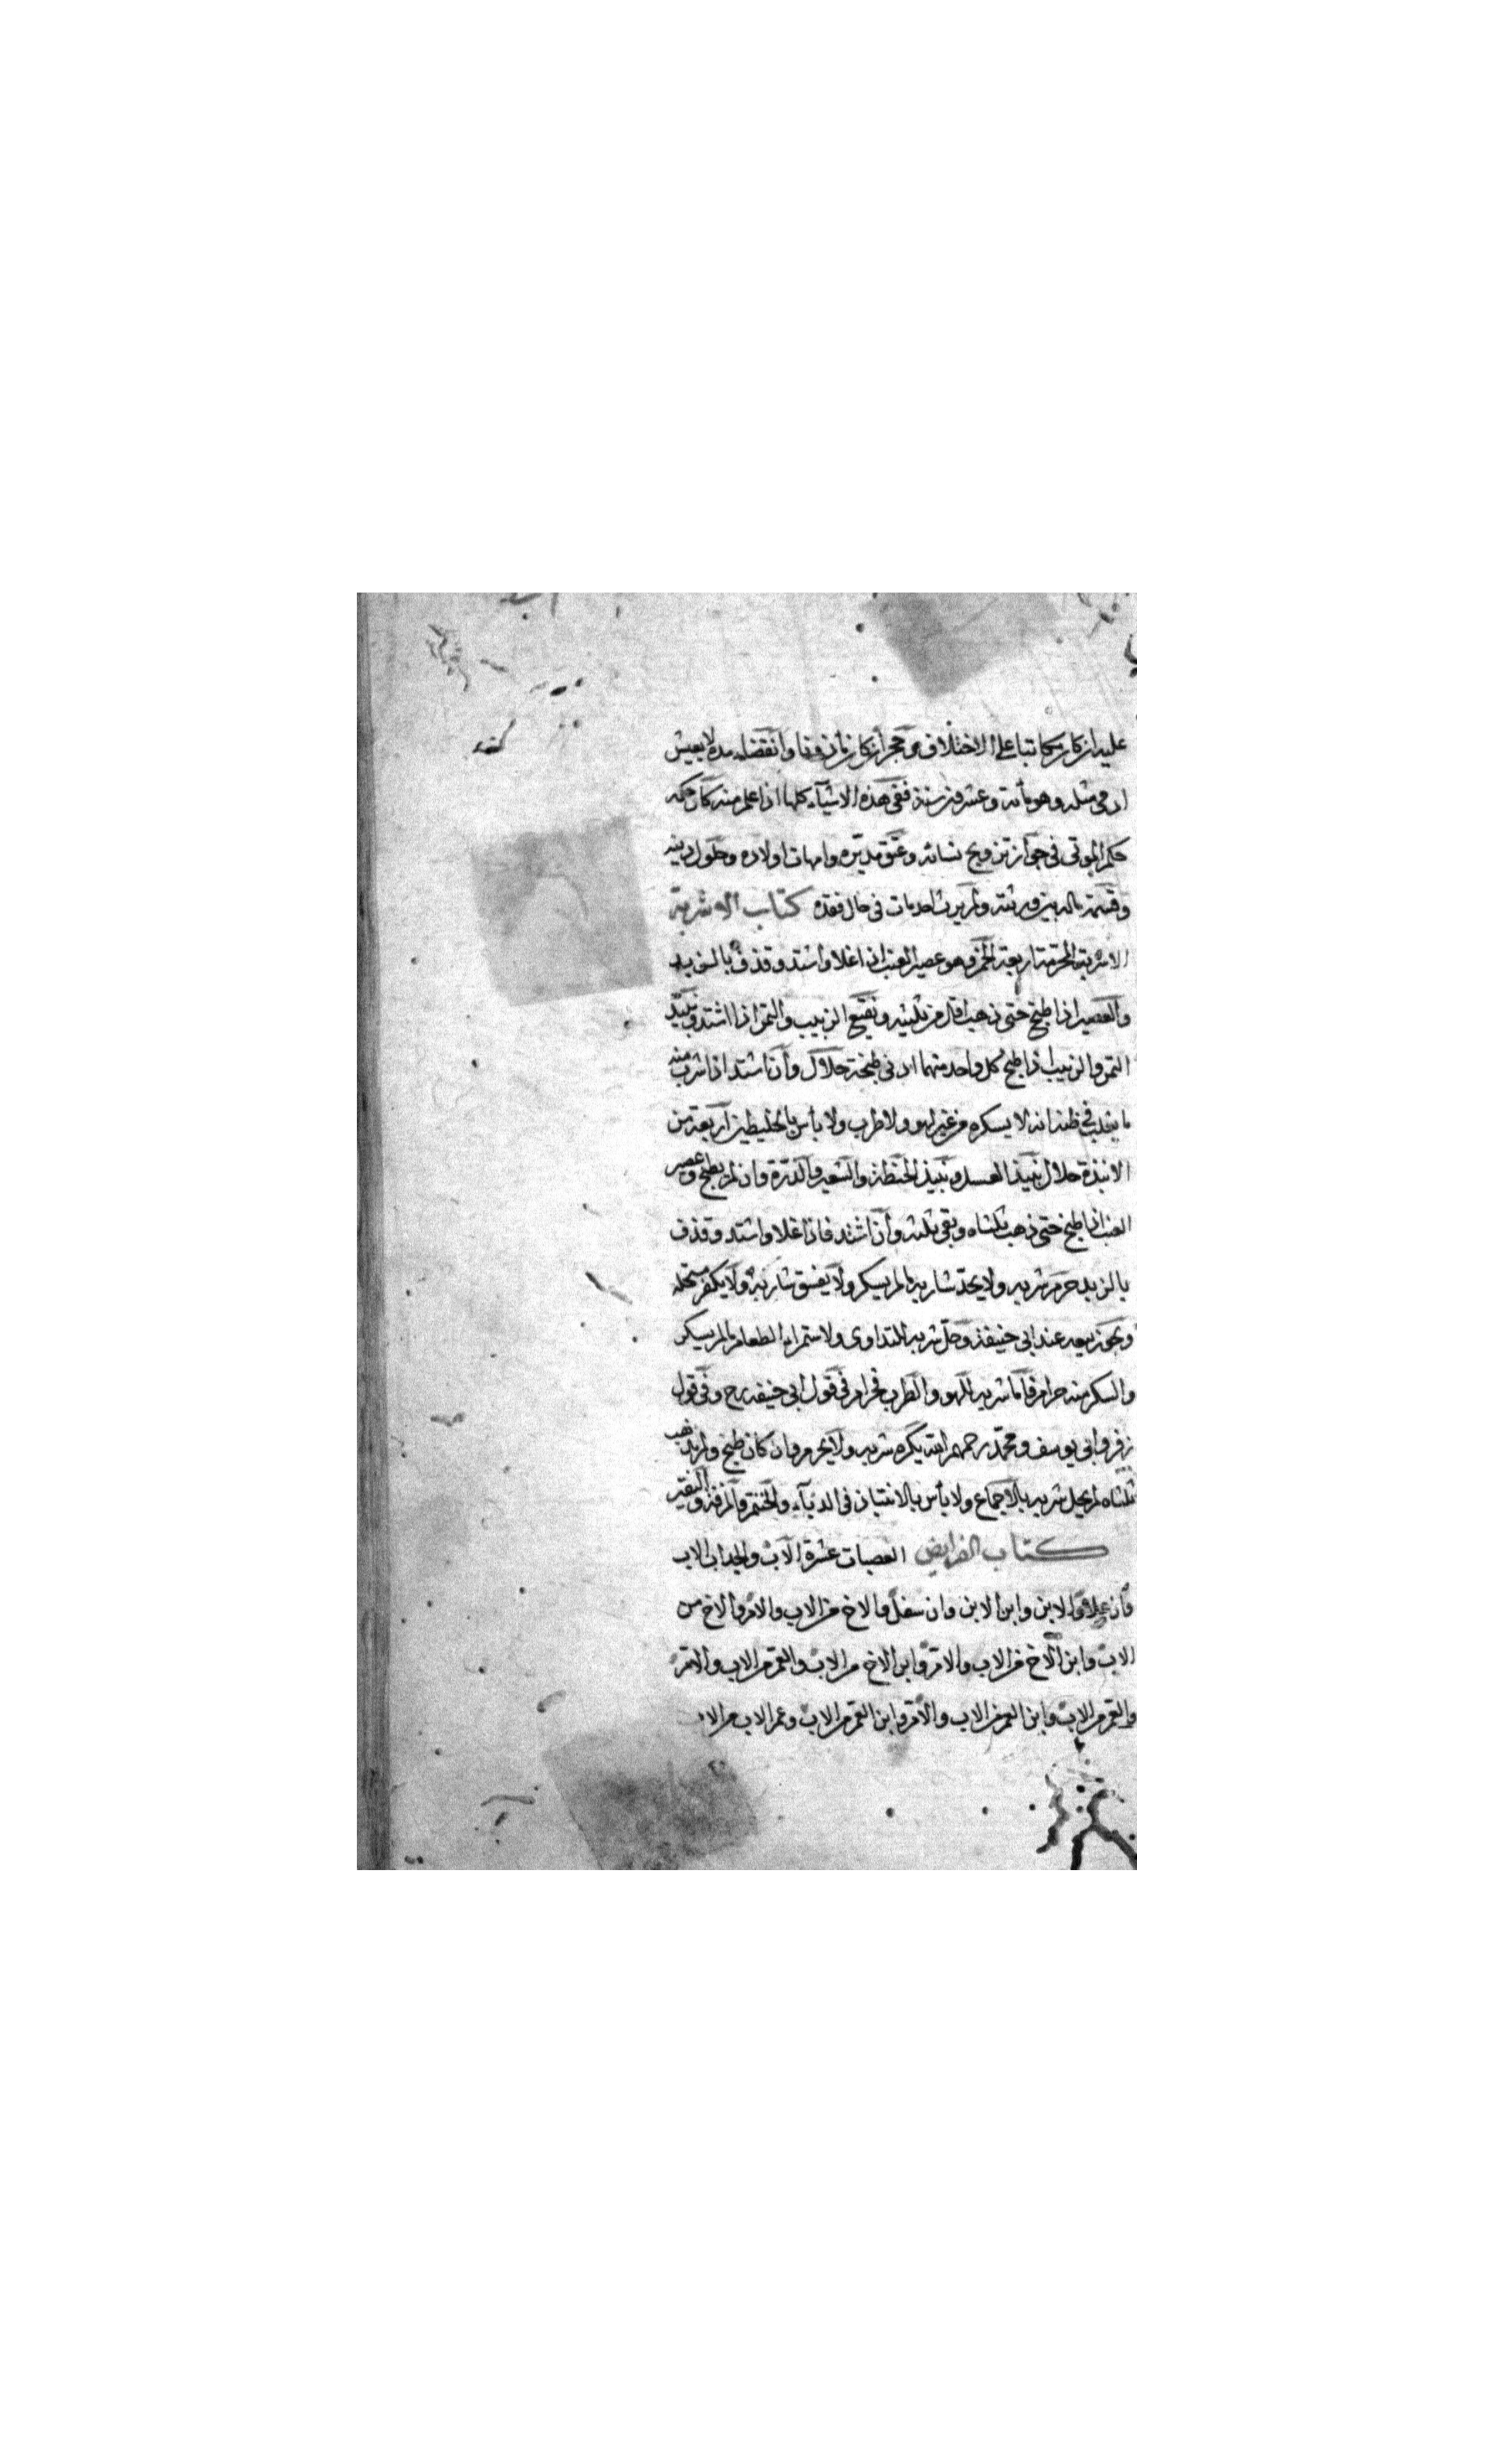 عليه ان كان مكاتبا على الاختلاف وحجر ان كان مأذونا وانقضاء مدة لا يعيش
ادمى مثله وهو مأئة وعشرون سنة ففى هذه الاشيآء كلها اذا علم منه كان حكمه
حكم الموتى فى جواز تزويج نسائه وعتق مدبره وامهات اولاده وحلول دينه
وقسمة ماله بين ورثته ولم يرث احد مات فى حال فقده كتاب الاشربة
الاشربة المحرمة اربعة الخمر وهو عصير العنب اذا غلا واشتد وقذف بالزبد
والعصير اذا طبخ حتى ذهب اقل من ثلثيه ونقيع الزبيب والتمر اذا اشتد ونبيذ
التمر والزبيب اذا طبخ كل واحد منهما ادنى طبخة حلال وان اشتد اذا شرب منه
ما يغلب فى ظنه انه لا يسكره من غير لهو ولا طرب ولا بأس بالخليطين اربعة من
الانبذة حلال نبيذ العسل ونبيذ الحنطة والشعير والذرة وان لم يطبخ وعصير
العنب اذا طبخ حتى ذهب ثلثاه وبقى ثلثه وان اشتد فاذا غلا واشتد وقذف
بالزبد حرم شربه ولا يحد شاربه ما لم يسكر ولا يفسق شاربه ولا يكفر مستحله
ويجوز بيعه عند ابى حنيفة وحل شربه للتداوى ولاستمراء الطعام ما لم يسكر
والسكر منه حرام فاما شربه للهو والطرب فحرام فى قول ابى حنيفه رح وفى قول
زفر وابى يوسف ومحمد رحمهم الله يكره شربه ولا يحرم وان كان طبخ ولم يذهب
ثلثاه لم يحل شربه بالاجماع ولا بأس بالانتباذ فى الدبآء والحنتم والمزفة والنقير
كتاب الفرايض العصبات عشرة الاب والجد اب الاب
وان علا والابن وابن الابن وان سفل والاخ من الاب والام والاخ من
الاب وابن الاخ من الاب والام وابن الاخ من الاب والعم من الاب والام
والعم من الاب وابن العم من الاب والام وابن العم من الاب وعم الاب من الاب